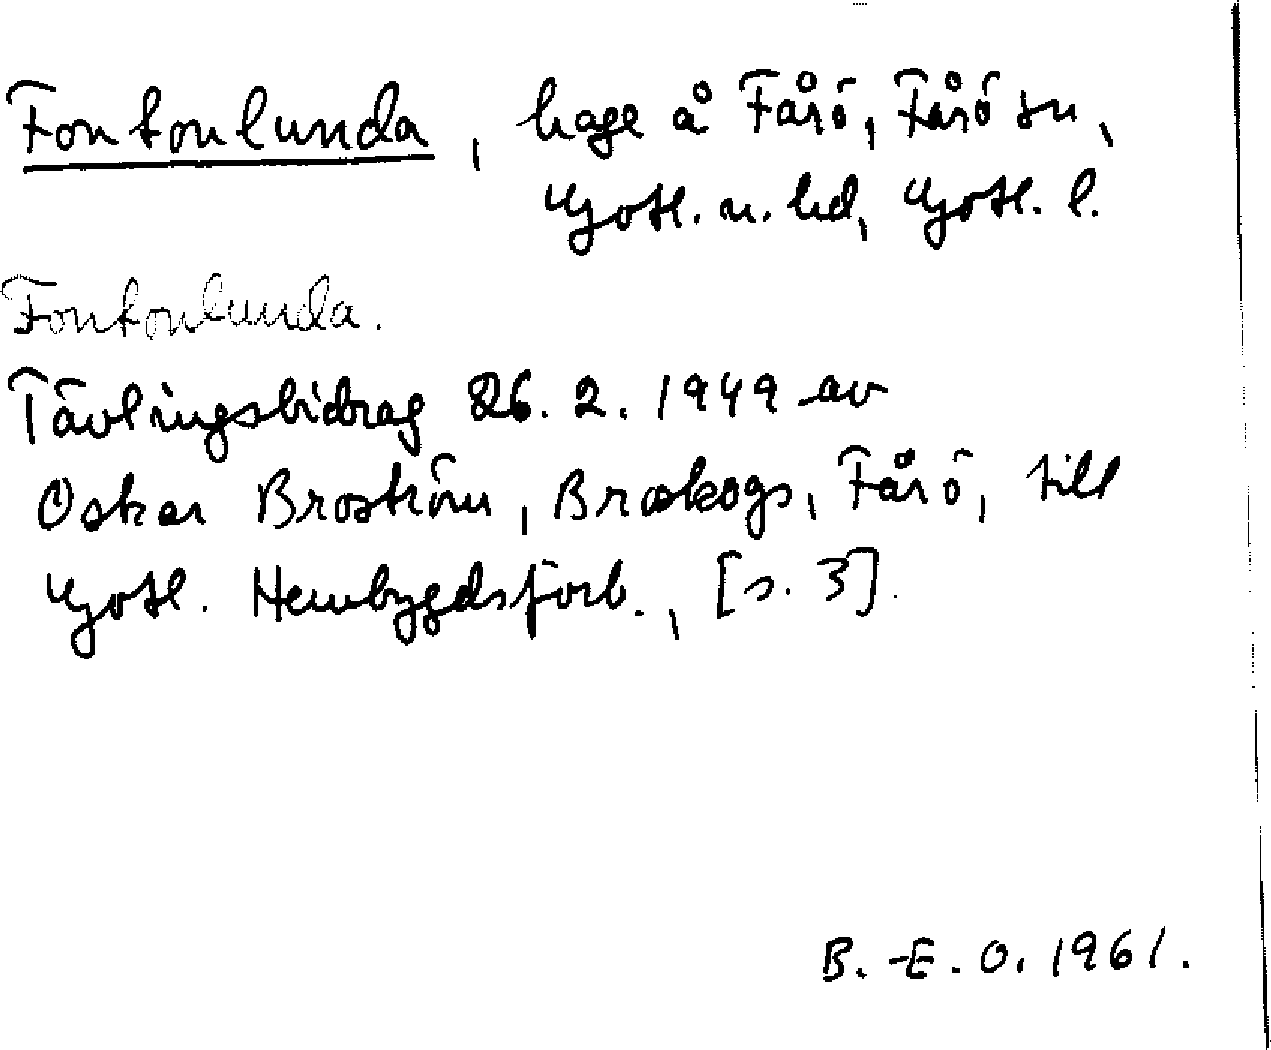 Fontonlunda, hage å Fårö, Fårö sn,
Gotl. n. hd, Gotl. l.
Fontonlunda.
Tävlingsbidrag 26. 2. 1949 av
Oskar Broström, Broskogs, Fårö, till
Gotl. Hembygdsförb., [s. 3].
B.-E. O. 1961.